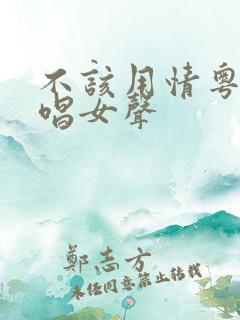 不該用情粵
唱女聲
鄭志方
未經同意禁止轉載